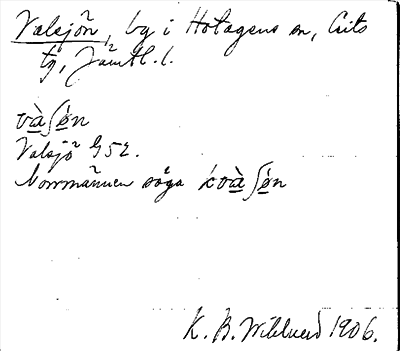 Valsjön, by i Hotagens sn, Lits
tg, Jämtl. l.
và̱ʃè̱n
Valsjö G52.
Norrmännen säga kvà̱ʃè̱n
K. B. Wiklund 1906.